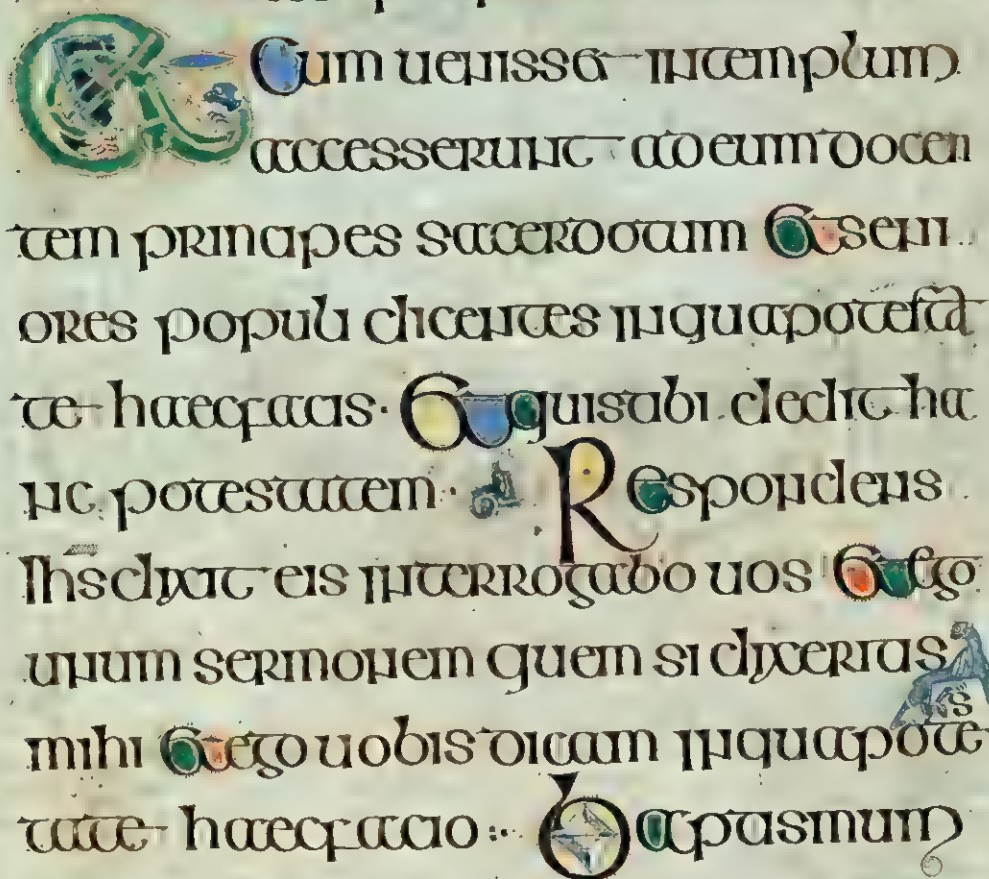 Et Cum uenisset intemplum
accesserunt ad eum docen
tem principes sacerdotum et seni
ores populi dicentes inquapotesta
te haecfacis · Et quistibi dedit ha
nc potestatem · Respondens
ihs dixit eis interrogabo uos et ego
unum sermonem quem si dixeritis
mihi et ego uobis dicam inquapotes
tate haecfacio : Baptismum